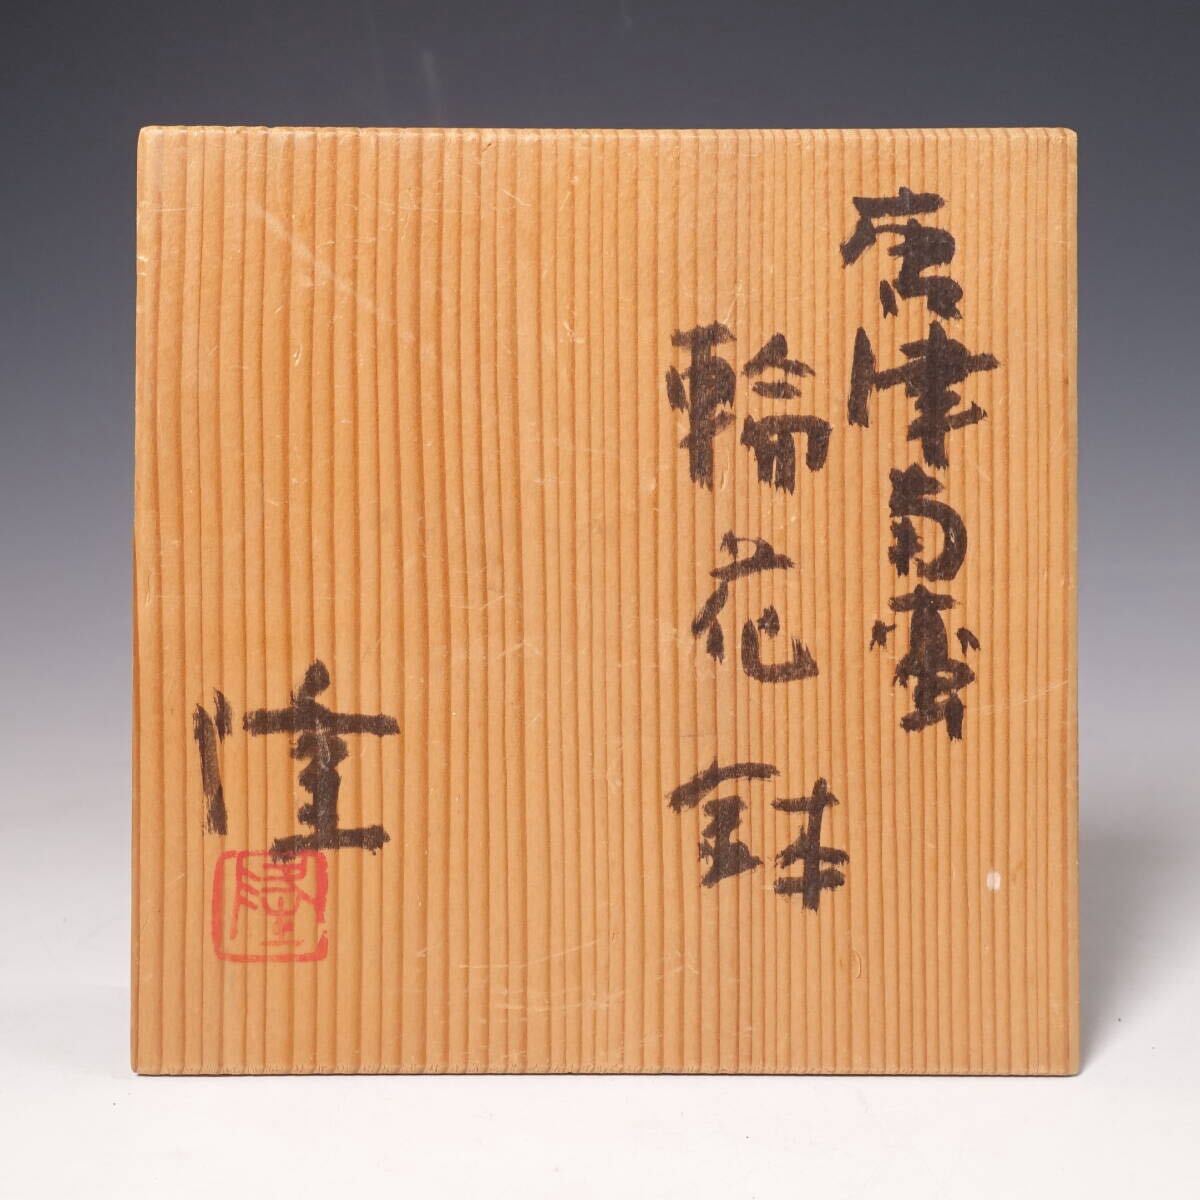 唐津南蛮
輪花鉢
隆